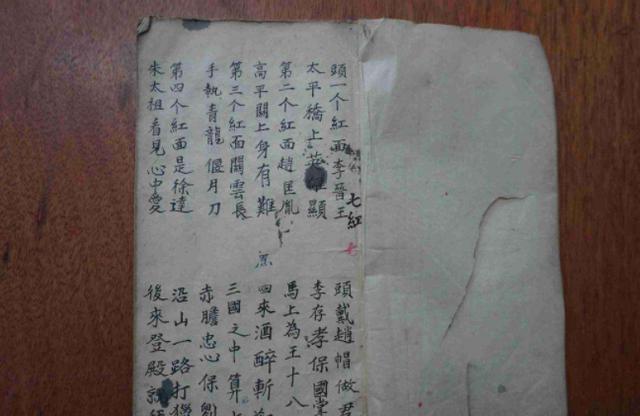 七紅
頭一个紅面李晉王 頭戴趙帽做君
太平橋上英顯 李存孝保國掌
第二个紅面趙匡胤 馬上為王十八
高平關上身有難 回來酒醉斬
第三个紅面關雲長 三國之中算
手執青龍偃月刀 赤膽忠心保劉
第四个紅面是徐達 沿山一路打獵
朱太祖看見心中愛 後來登殿